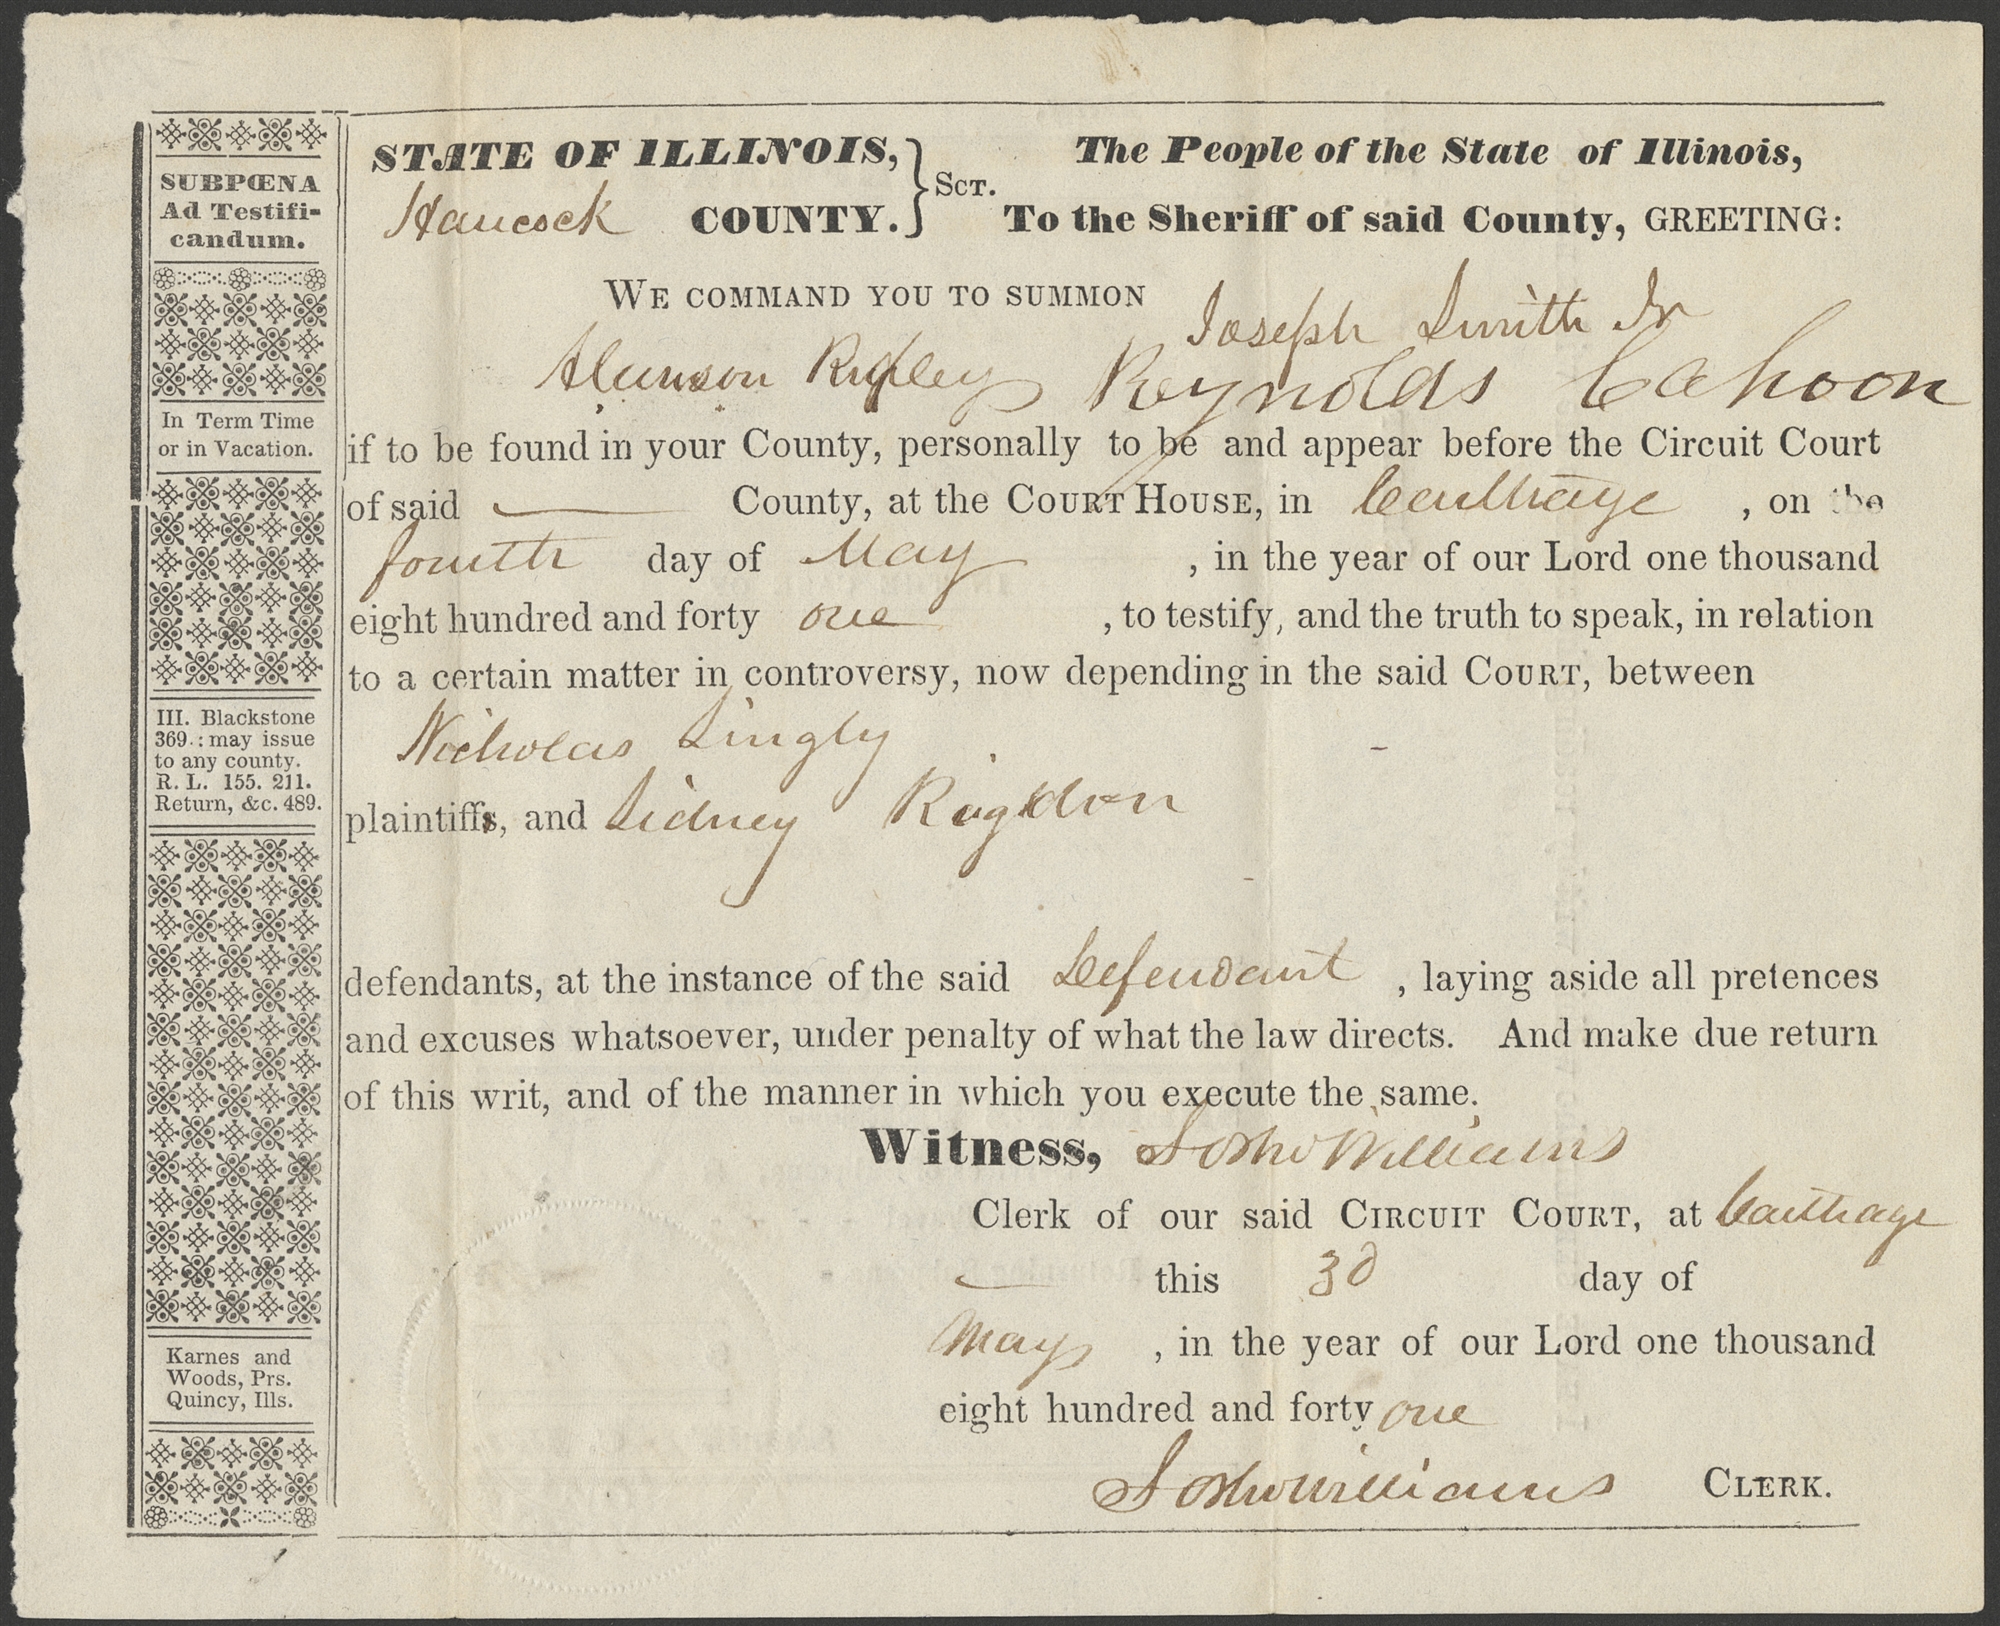 SUBPŒNA
Ad Testifi-
candum.
In Term Time
or in Vacation.
III. Blackstone
369.: may issue
to any county.
R. L. 155. 211.
Return, &c. 489.
Karnes and
Woods, Prs.
Quincy, Ills.
STATE OF ILLINOIS,
Hancock COUNTY. } Sct.
The People of the State of Illinois,
To the Sheriff of said County, GREETING:
WE COMMAND YOU TO SUMMON Joseph Smith Jr
Alanson Ripley Reynolds Cahoon
if to be found in your County, personally to be and appear before the Circuit Court
of said County, at the COURT HOUSE, in Carthage , on the
fourth day of May , in the year of our Lord one thousand
eight hundred and forty one , to testify, and the truth to speak, in relation
to a certain matter in controversy, now depending in the said COURT, between
Nicholas Lingly
plaintiffs, and Sidney Rigdon
defendants, at the instance of the said Defendant , laying aside all pretences
and excuses whatsoever, under penalty of what the law directs. And make due return
of this writ, and of the manner in which you execute the same.
Witness, Williams
Clerk of our said CIRCUIT COURT, at Carthage
this 3d day of
May , in the year of our Lord one thousand
eight hundred and forty one
Williams CLERK.